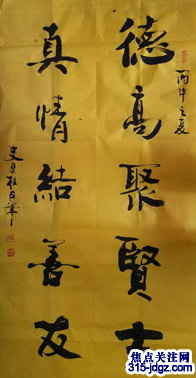 丙申之夏
德高聚賢士
真情結善友
焦点关注网
315-jdgz.com